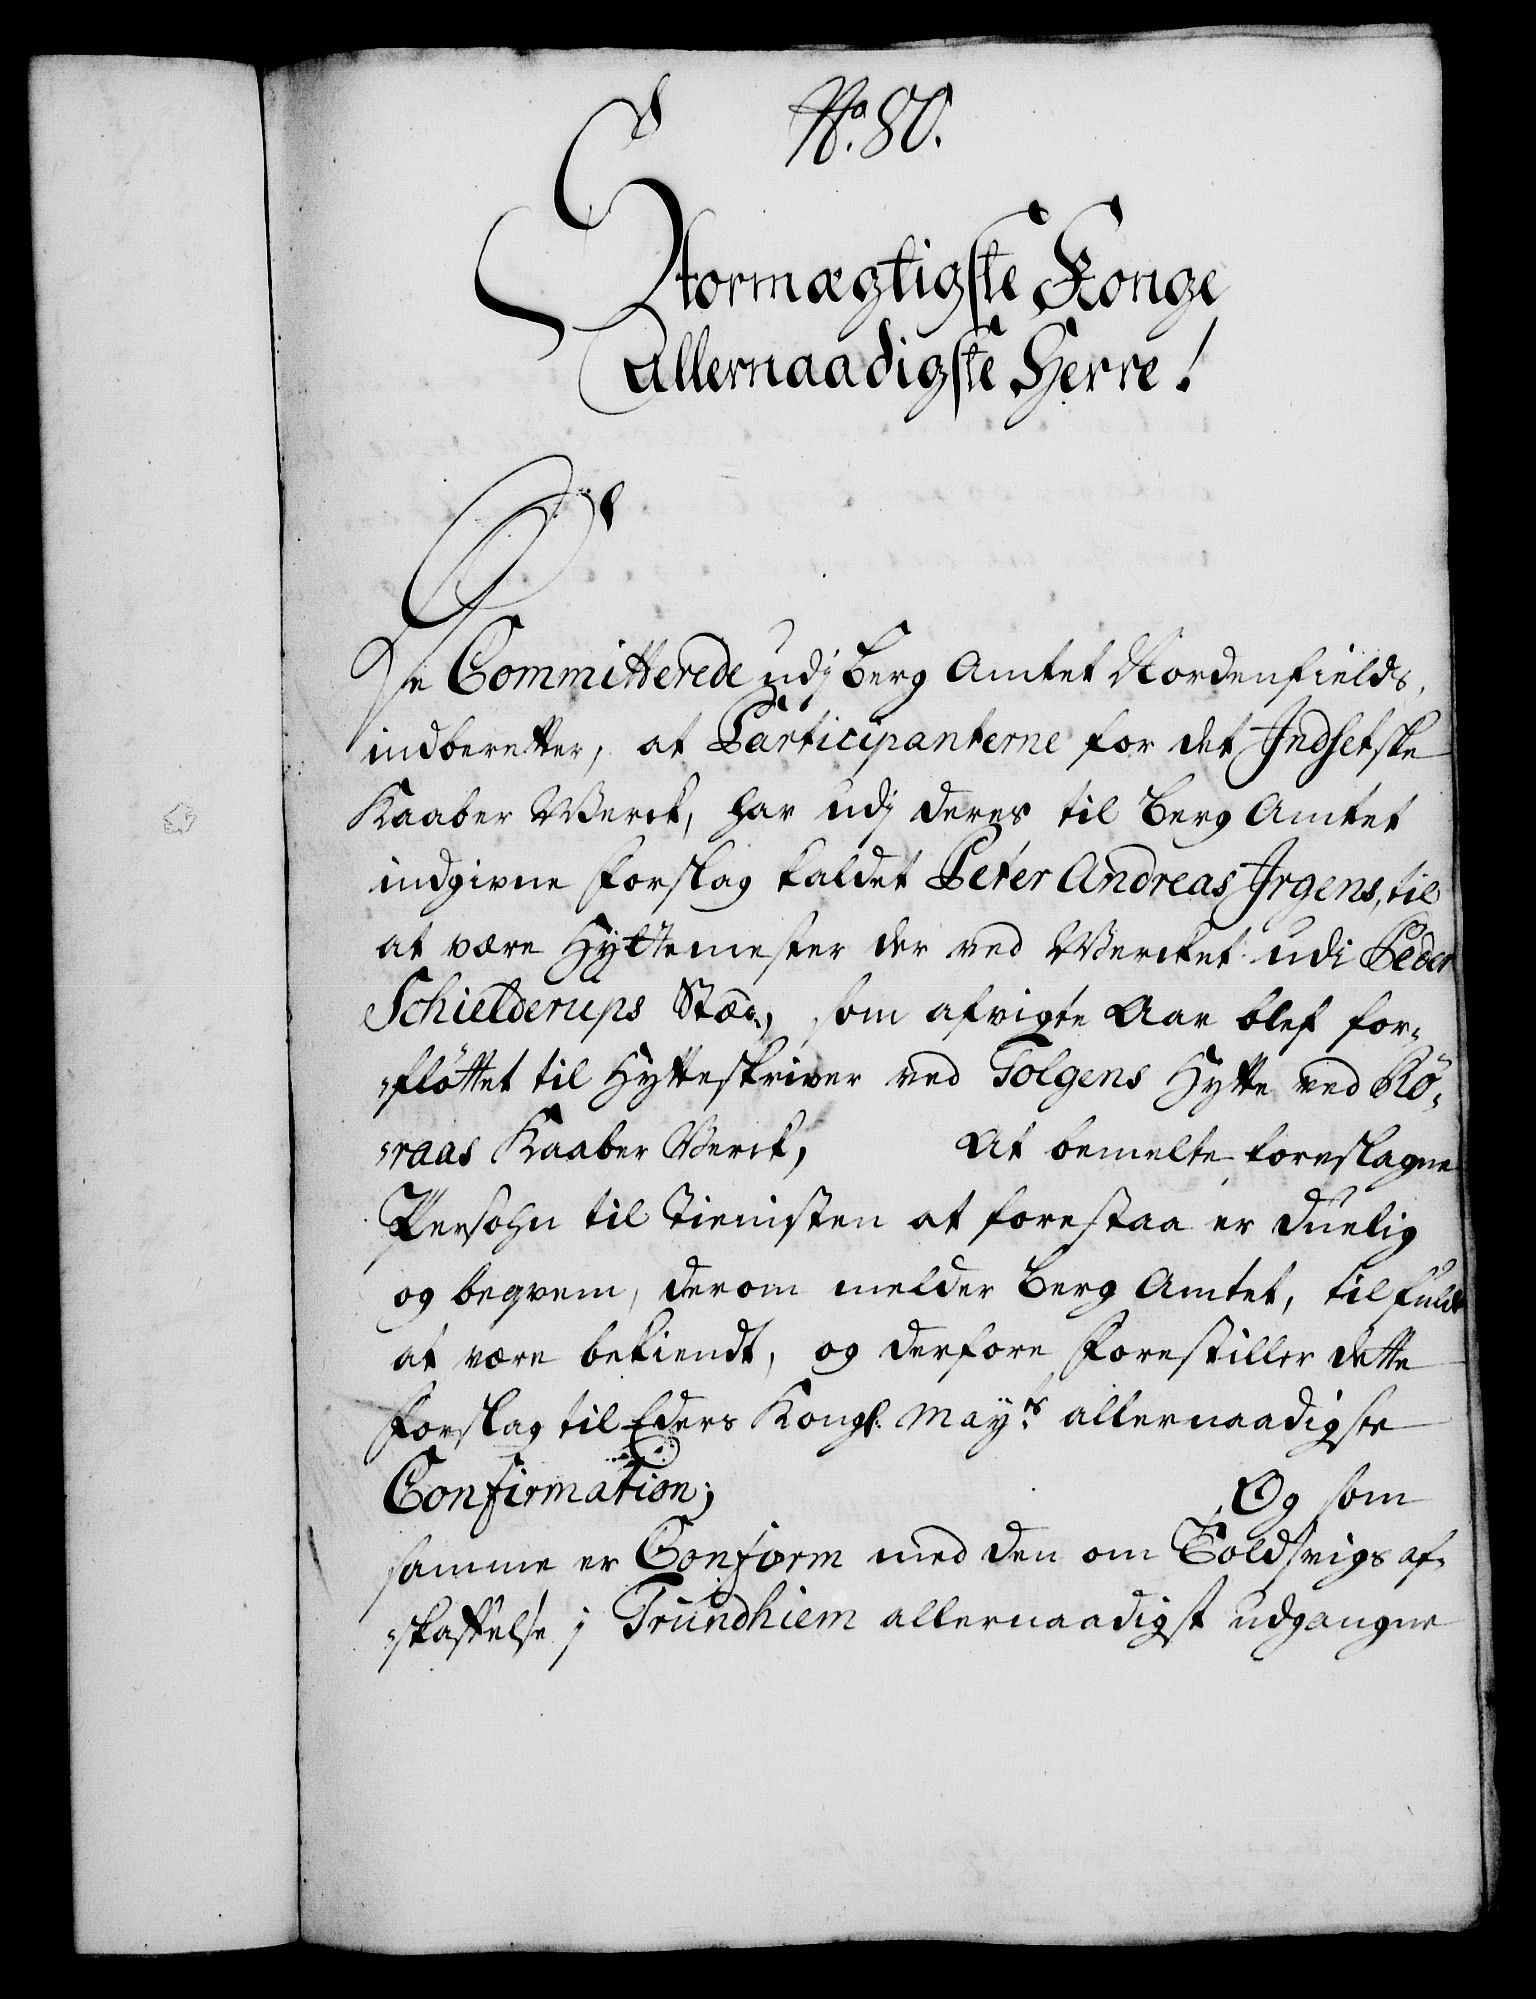 No. 80.
Stormægtigste Konge
Allernaadigste Herre!
De Committerede udj Berg Amtet Nordenfields,
indberetter, at Participanterne for det Indsetske
Kaaber Werck, har udj deres til Berg Amtet
indgivne Forslag kaldet Peter Andreas Irgens, til
at være Hyttemester der ved Wercket udi Peder
Schielderups Stæd, som afvigte Aar blef for-
-fløttet til Hytteskriver ved Tolgens Hytte ved Rø-
-raas Kaaber Werck, At bemelte foreslagne
Persohn til Tienisten at forestaa er duelig
og beqvem, derom melder Berg Amtet, til fulde
at være bekiendt, og derfore Forestiller dette
Forslag til Eders Kongl. Mayts allernaadigste
Confirmation; Og som
samme er Conform med den om Toldsvigs af-
-skaffelse j Trundhiem allernaadigst udgangne